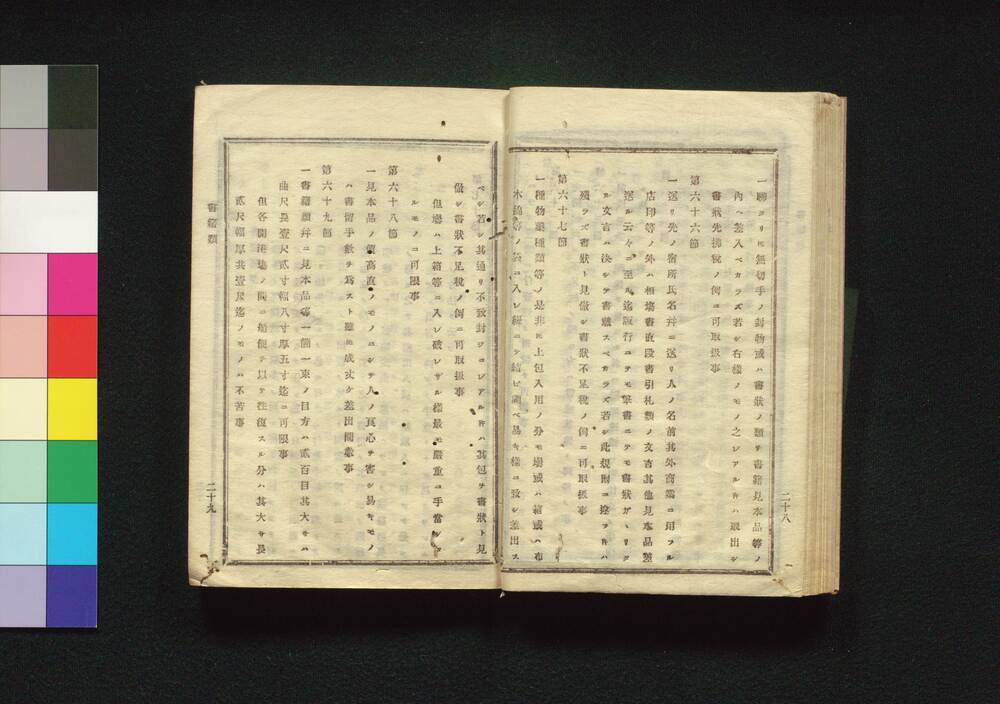 一聊ヨリニ無切手ノ封物或ハ書狀ノ類ヲ書籍見本品等ノ
內ヘ差入ベカラズ若シ右樣ノモノ之レアル件ハ取出シ
書狀先拂稅ノ例ニ可取扱事
第六十六節
一送リ先ノ宿所氏名幷ニ送リ人ノ名前其外商
店印等ノ外ハ相塲書直段書引札類ノ文言其他見本品差
送ル云々ニ至ル迄版行ニテモ筆書ニテモ書狀ガヽリタ
ル文言ハ決シテ書載スベカラズ若シ此規則ニ逆フ件ハ
殘ラズ書狀ト見做シ書狀不足稅ノ例ニ可取扱事
第六十七節
一種物藥種類等ノ是非ニ上包入用ノ分モ塲或ハ箱或ハ布
木綿等ノ袋ニ入レ紐ニテ結ビ調ベ易キ樣ニ致シ差出ス
二十八
ベシ若シ其通リ不致封ジコレアル件ハ其包ヲ書狀ト見
做シ書狀不足稅ノ例ニ可取扱事
但塲ハ上箱等ニ入レ破レザル樣最モ嚴重ニ手當シタ
ルモノニ可限事
第六十八節
一見本品ノ價高直ノモノニシテ人ノ良心ヲ害シ易キモノ
ハ書留手數ヲ爲スト雖ニ成丈ケ差出間敷事
第六十九節
一書籍類幷ニ見本品等一個一束ノ目方ハ貳百目其大サハ
曲尺長壹尺貳寸幅八寸厚五寸迄ニ可限事
但各開港塲ノ間ニ船便ヲ以テ往復スル分ハ其大サ長
貳尺幅厚共壹尺迄ノモノハ不苦事
書籍類
二十九